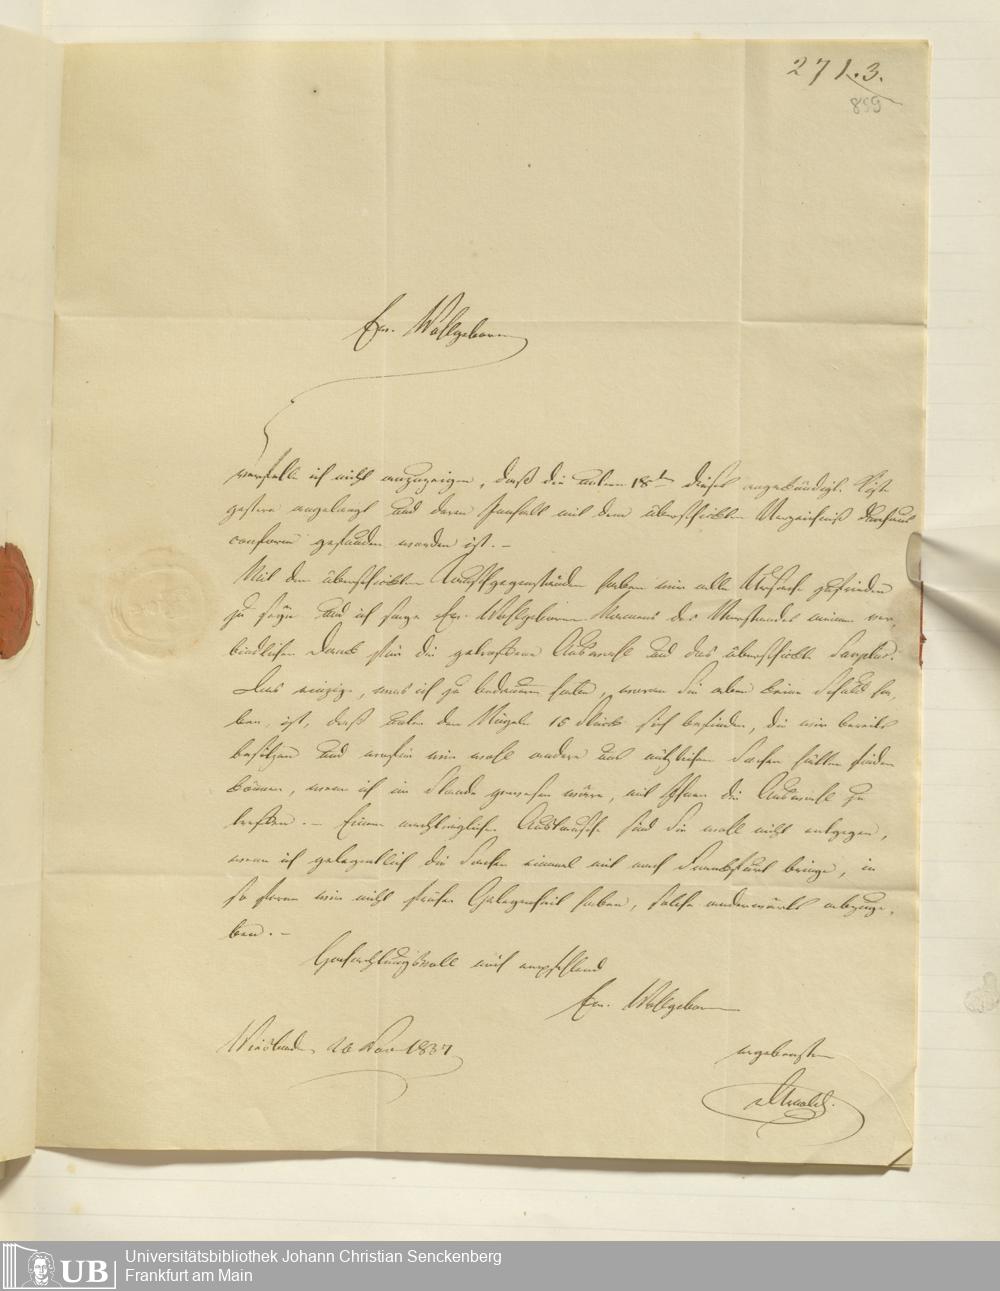 271.3.
859
Ew. Wohlgeboren
verfehle ich nicht anzuzeigen, daß die unterm 18ten dieses angekündigte Kiste
gestern angelangt und deren Inhalt mit dem überschickten Verzeichniß durchaus
conform gefunden worden ist. –
Mit den überschickten Tauschgegenständen haben wir alle Ursache zufrieden
zu seyn und ich sage Ew. Wohlgeboren Namens des Vorstandes meinen ver-
bindlichsten Dank für die getroffene Auswahl und das überschickte
Das einzige, was ich zu bedauern habe, woran Sie aber keine Schuld ha-
ben, ist, daß unter den Vögeln 15 Stück sich befinden, die wir bereits
besitzen und wofür wir wohl andere uns nützlichere Sachen hätten finden
können, wenn ich im Stande gewesen wäre, mit Ihnen die Auswahl zu
treffen. – Einem nachträglichen Austausche sind Sie wohl nicht entgegen,
wenn ich gelegentlich die Sachen einmal mit nach Frankfurt bringe, in
so ferne wir nicht früher Gelegenheit haben, solche anderwärts abzuge-
ben. –
Hochachtungsvoll mich empfehlend
Ew. Wohlgeboren
Wiesbaden, 26 Nov 1837
ergebenster
Universitätsbibliothek Johann Christian Senckenberg
Frankfurt am Main
UB